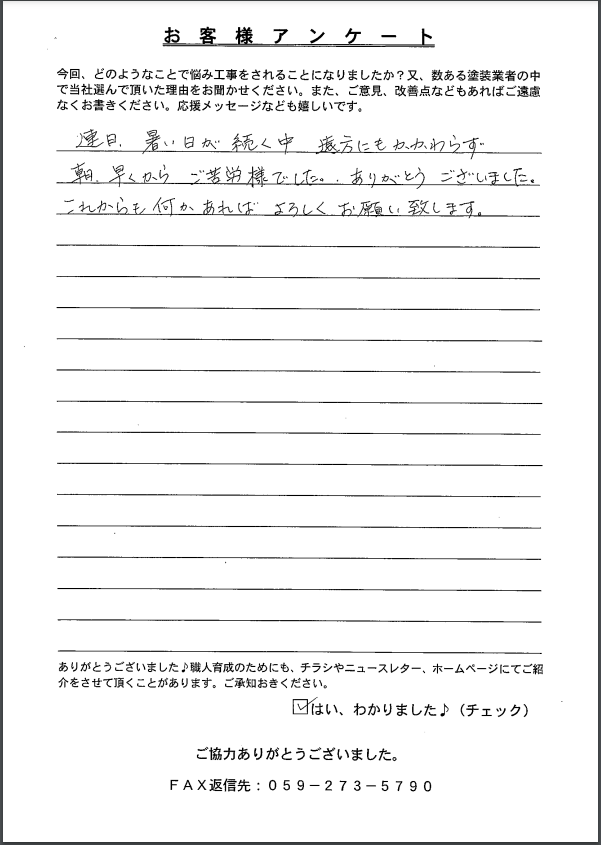 お客様アンケート
今回、どのようなことで悩み工事をされることになりましたか？又、数ある塗装業者の中
で当社選んで頂いた理由をお聞かせください。また、ご意見、改善点などもあればご遠慮
なくお書きください。応援メッセージなども嬉しいです。
連日、暑い日が続く中 遠方にもかかわらず
朝、早くから ご苦労様でした。ありがとう ございました。
これからも何かあれば よろしく お願い致します。
ありがとうございました♪職人育成のためにも、チラシやニュースレター、ホームページにてご紹
介をさせて頂くことがあります。ご承知おきください。
☑はい、わかりました♪（チェック）
ご協力ありがとうございました。
ＦＡＸ返信先：０５９－２７３－５７９０